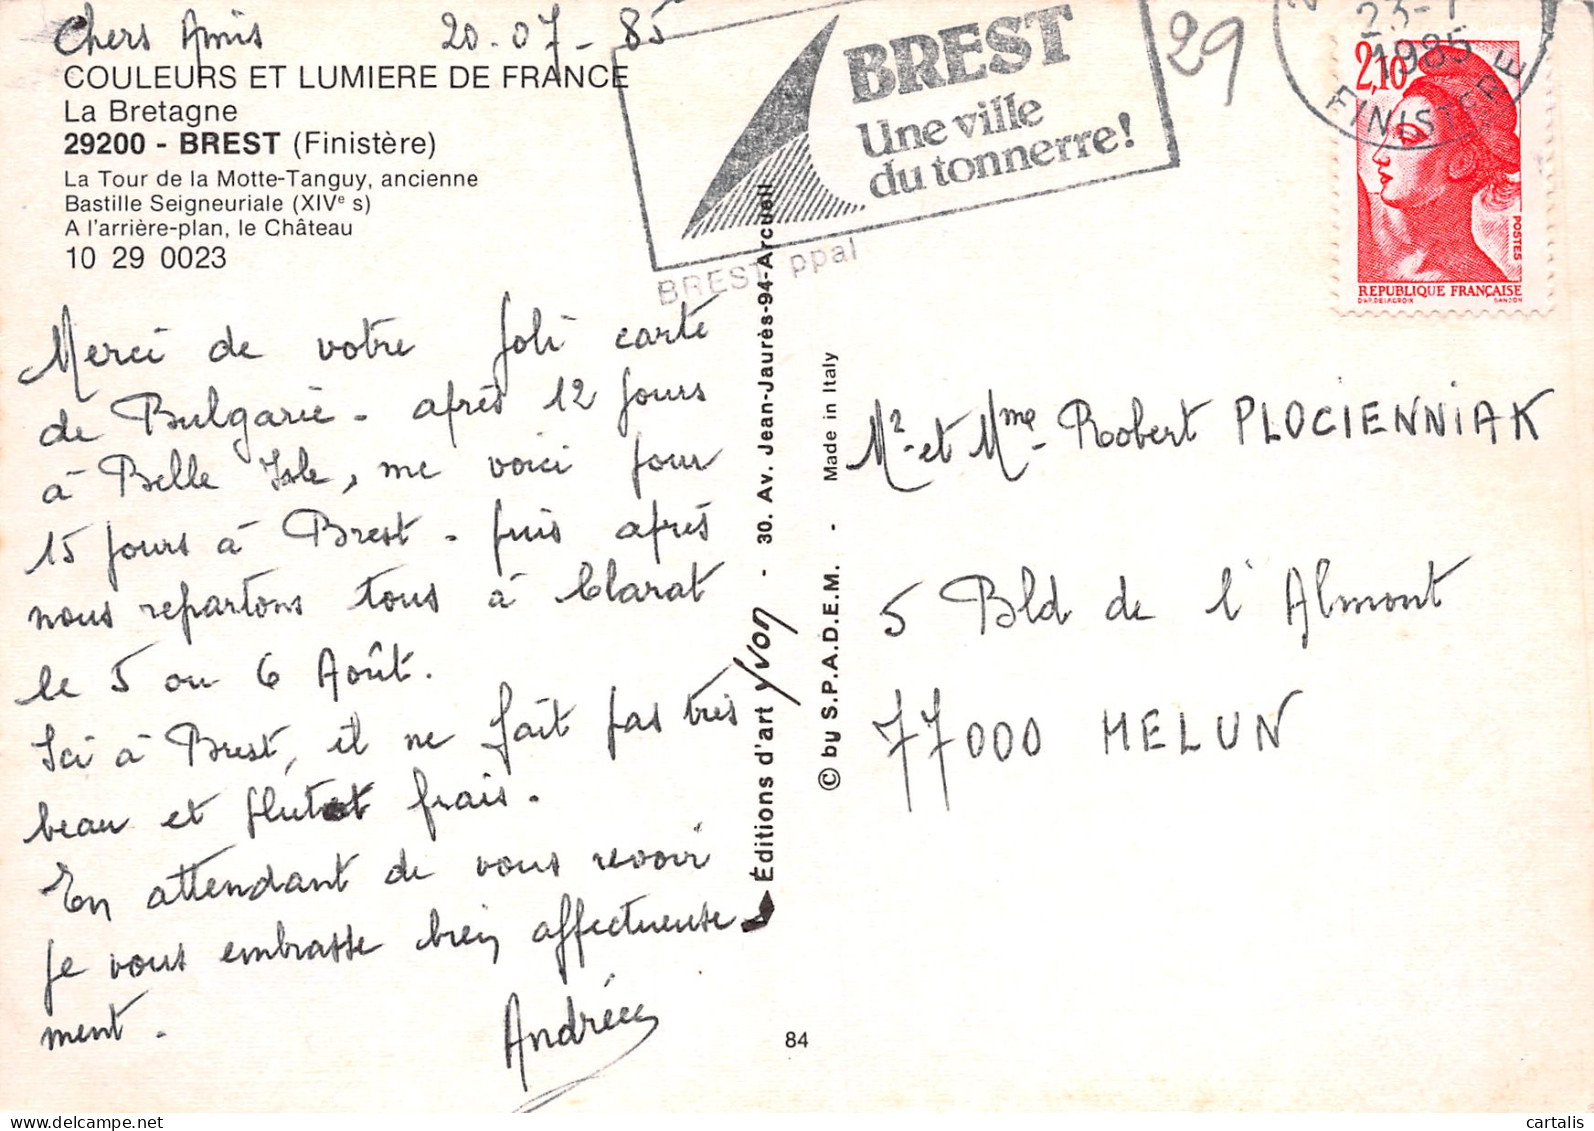 Chers Amis 20-07-85
COULEURS ET LUMIERE DE FRANCE
La Bretagne
29200 - BREST (Finistère)
La Tour de la Motte-Tanguy, ancienne
Bastille Seigneuriale (XIVe s)
A l'arrière-plan, le Château
10 29 0023
Merci de votre joli carte
de Bulgarie - après 12 jours
à Belle Isle, me voici pour
15 jours à Brest - puis après
nous repartons tous à Clarat
le 5 ou 6 Août.
Ici à Brest, il ne fait pas très
beau et plutôt frais.
En attendant de vous revoir
je vous embrasse bien affectueuse
ment.
Andrée
BREST
Une ville
du tonnerre!
BREST ppal
29
23-7
1985
FINISTERE
2,10
POSTES
REPUBLIQUE FRANÇAISE
D'AP. DELACROIX GANDON
Éditions d'art Yvon - 30. Av. Jean-Jaurès-94-Arcueil
© by S.P.A.D.E.M. - Made in Italy
Mr et Mme Robert PLOCIENNIAK
5 Bld de l'Almont
77000 MELUN
84
CARTE POSTALE
cartalis
delcampe.net